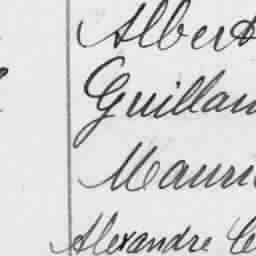 Albert
Guillau
Mauri
Alexandre C